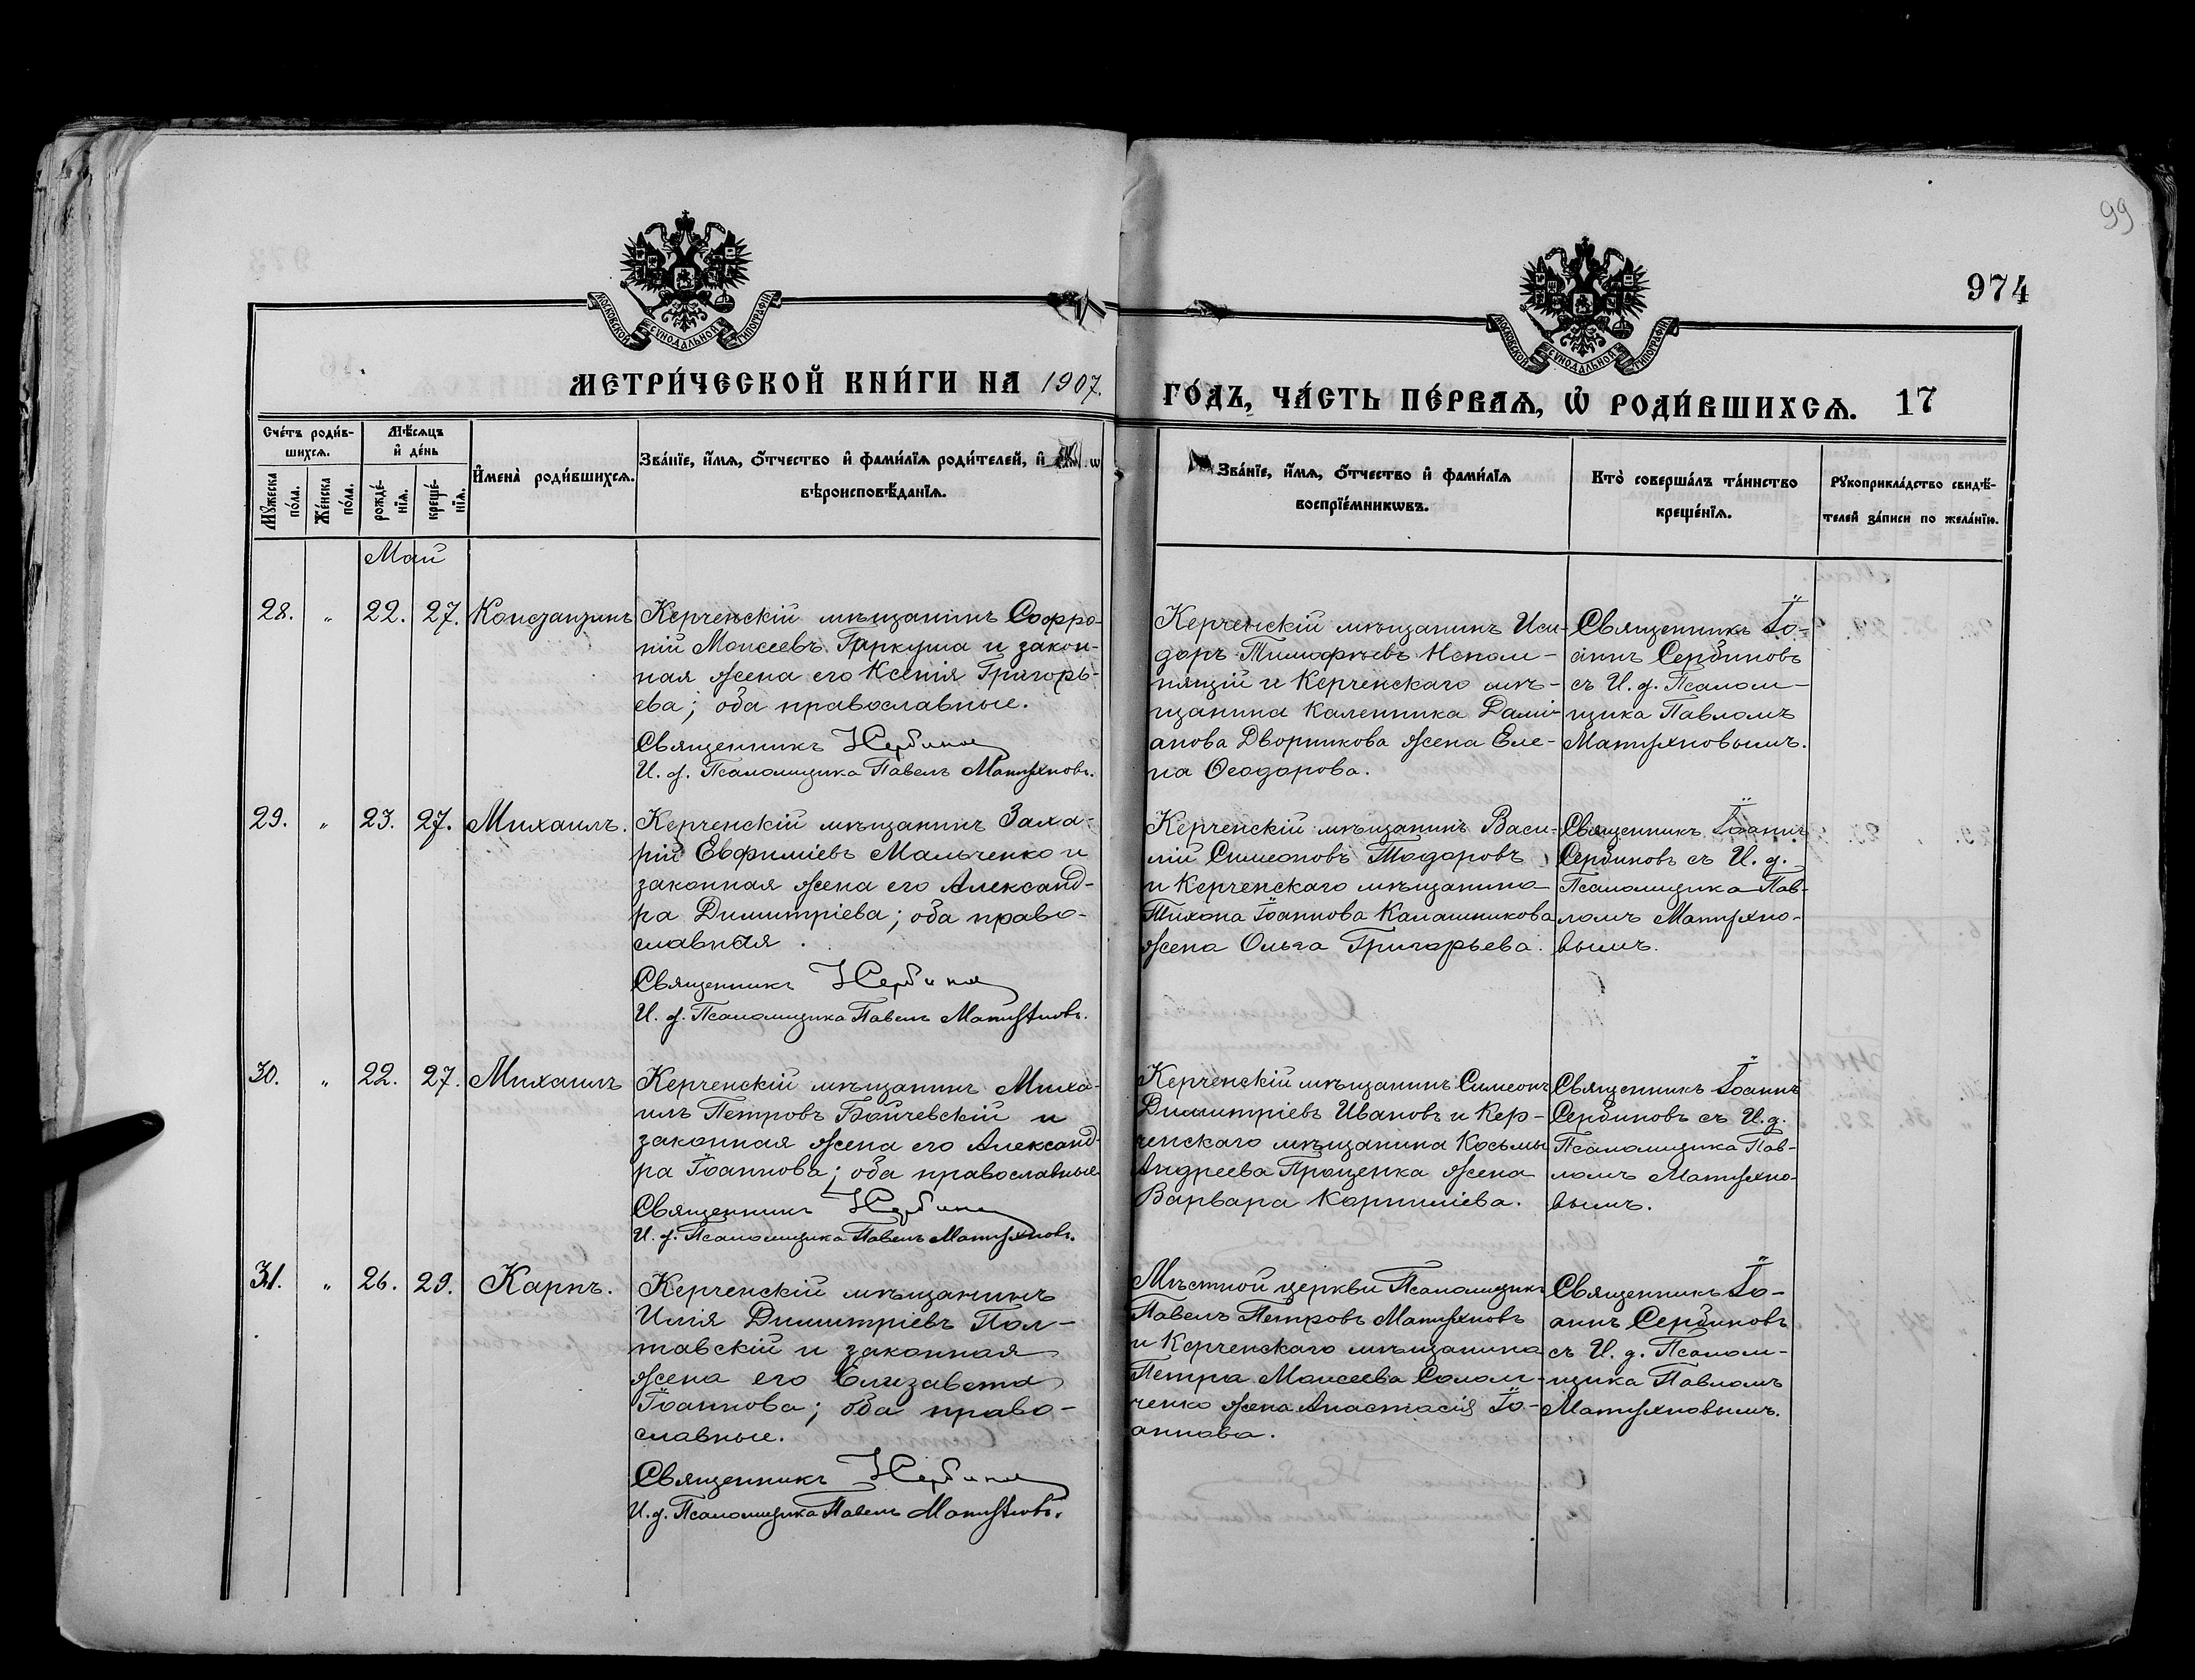 99
974
МОСКОВСКОЙ СУНОДАЛЬНОЙ ТИПОГРАФІИ
МОСКОВСКОЙ СУНОДАЛЬНОЙ ТИПОГРАФІИ
МЕТРИ́ЧЕСКОЙ КНИ́ГИ НА 1907.
ГО́ДЪ, ЧА́СТЬ ПЕ́РВАѦ, Ѡ҆ РОДИ́ВШИХСѦ. 17
Сче́тъ роди́в-
шихсѧ.
Мѣ́сѧцъ
и҆ де́нь
Мꙋ́жеска
по́ла.
Же́нска
по́ла.
рожде́-
нїѧ.
креще́-
нїѧ.
И҆мена̀ роди́вшихсѧ.
Зва́нїе, и҆́мѧ, ѻ҆́тчество и҆ фами́лїѧ роди́телей, и҆
вѣроисповѣ́данїѧ.
Зва́нїе, и҆́мѧ, ѻ҆́тчество и҆ фами́лїѧ
воспрїе́мникѡвъ.
Кто̀ соверша́лъ та́инство
креще́нїѧ.
Рꙋкоприкла́дство свидѣ́-
телей за́писи по жела́нїю.
Май
28. " 22. 27. Константинъ
Керченскій мѣщанинъ Софро-
ній Моисеевъ Гаркуша и закон-
ная жена его Ксенія Григорь-
ева; оба православные.
Священникъ Сербиновъ
И. д. Псаломщика Павелъ Матухновъ.
Керченскій мѣщанинъ Иси-
доръ Тимофѣевъ Непом-
нящій и Керченскаго мѣ-
щанина Каленника Дамі-
анова Дворникова жена Еле-
на Ѳеодорова.
Священникъ Іо-
аннъ Сербиновъ
съ И. д. Псалом-
щика Павломъ
Матухновымъ.
29. " 23. 27. Михаилъ.
Керченскій мѣщанинъ Заха-
рій Евфиміевъ Мальченко и
законная жена его Александ-
ра Димитріева; оба право-
славныя.
Священникъ Сербиновъ
И. д. Псаломщика Павелъ Матухновъ.
Керченскій мѣщанинъ Васи-
лій Симеоновъ Тодоровъ
и Керченскаго мѣщанина
Тихона Іоаннова Калашникова
жена Ольга Григорьева.
Священникъ Іоаннъ
Сербиновъ съ И. д.
Псаломщика Пав-
ломъ Матухно-
вымъ.
30. " 22. 27. Михаилъ
Керченскій мѣщанинъ Миха-
илъ Петровъ Бойчевскій и
законная жена его Александ-
ра Іоаннова; оба православные
Священникъ Сербиновъ
И. д. Псаломщика Павелъ Матухновъ.
Керченскій мѣщанинъ Симеонъ
Димитріевъ Ивановъ и Кер-
ченскаго мѣщанина Косьмы
Андреева Проценка жена
Варвара Корниліева.
Священникъ Іоаннъ
Сербиновъ съ И. д.
Псаломщика Пав-
ломъ Матухно-
вымъ.
31. " 26. 29. Карпъ.
Керченскій мѣщанинъ
Илія Димитріевъ Пол-
тавскій и законная
жена его Елизавета
Іоаннова; оба право-
славные.
Священникъ Сербиновъ
И. д. Псаломщика Павелъ Матухновъ.
Мѣстной церкви Псаломщикъ
Павелъ Петровъ Матухновъ
и Керченскаго мѣщанина
Петра Моисеева Солом-
ченко жена Анастасія Іо-
аннова.
Священникъ Іо-
аннъ Сербиновъ
съ И. д. Псалом-
щика Павломъ
Матухновымъ.